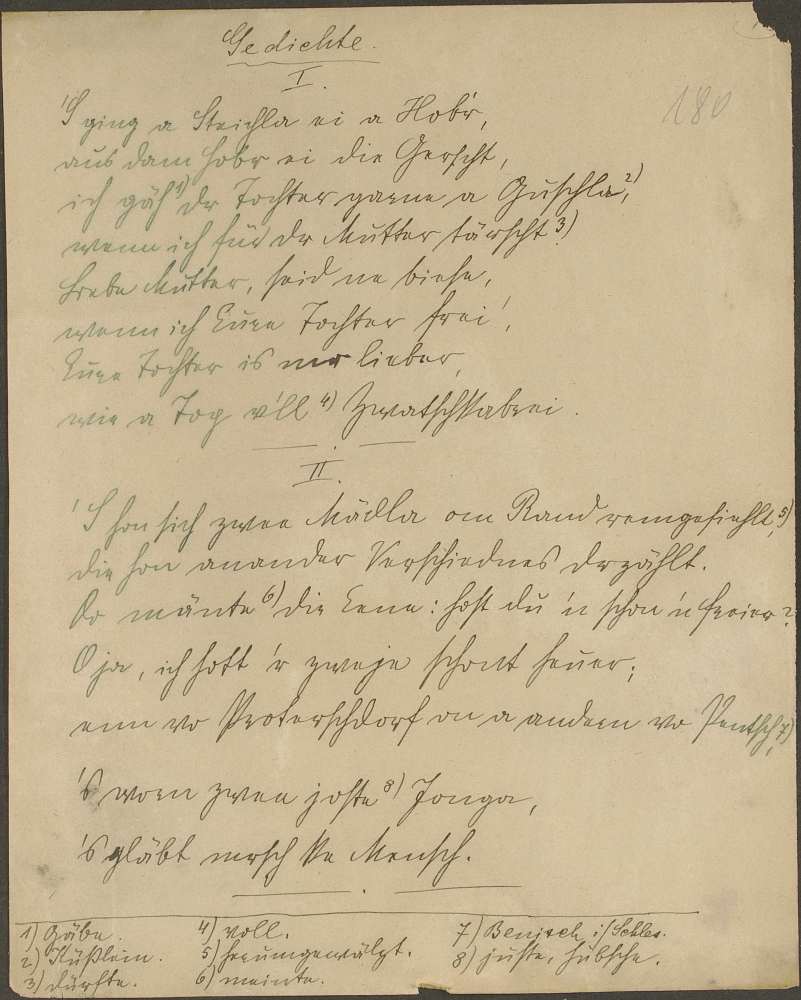 Gedichte.
I.
'S ging a Steichla ei a Hob'r,
aus dam Hobr ei die Gerscht,
ich gäh¹⁾ dr Tochter garne a Guschla²⁾,
wenn ich für dr Mutter tärscht³⁾.
Liebe Mutter, seid ne biese,
wenn ich Eure Tochter frei',
Eure Tochter is mer lieber,
wie a Top v'll⁴⁾ Zwatschkabrei.
II.
'S hon sich zwee Mädla om Rand remgesiehlt⁵⁾,
die hon anander Verschiednes drzählt.
Do mänte⁶⁾ die Eene: host du 'n schon 'n Freier?
O ja, ich hott 'r zweje schont heuer;
enn vo Prokerschdorf on a andern vo Pentsch⁷⁾,
's worn zwee joste⁸⁾ Jonga,
's gläbt mersch ke Mensch.
180
1) Gäbe.
2) Küßlein.
3) dürfte.
4) voll.
5) herumgewälzt.
6) meinte.
7) Benisch i/Schles.
8) juste, hübsche.